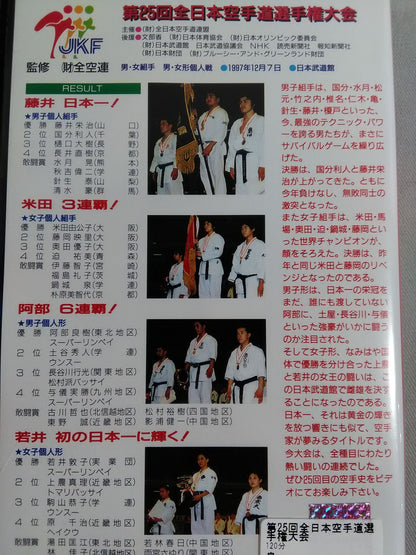 第25回全日本空手道選手権大会
JKF
監修 (財)全空連
主催●(財)全日本空手道連盟
後援●文部省 (財)日本体育協会 (財)日本オリンピック委員会
日本武道館 日本武道協議会 NHK 読売新聞社 報知新聞社
(財)日本財団 (財)ブルーシー・アンド・グリーンランド財団
男・女組手 男・女形個人戦 ●1997年12月7日 ●日本武道館
RESULT
藤井 日本一!
★男子個人組手
優勝 藤井栄治(山口)
2位 国分利人(千葉)
3位 樋口大樹(長野)
4位 長井直樹(京都)
敢闘賞 水月晃(熊本)
秋吉偉二(学連)
針生泰(山梨)
清水豪(群馬)
米田 3連覇!
★女子個人組手
優勝 米田由公子(大阪)
2位 藤岡映里(大阪)
3位 奥田優子(大阪)
4位 迫祐美(青森)
敢闘賞 伊藤智子(宮崎)
福島礼子(茨城)
鍋城泉(学連)
朴原美智代(京都)
阿部 6連覇!
★男子個人形
優勝 阿部良樹(東北地区)
スーパーリンペイ
2位 土谷秀人(学連)
ウンスー
3位 長谷川行光(関東地区)
松村派バッサイ
4位 与儀実勝(九州地区)
スーパーリンペイ
敢闘賞 古川哲也(北信越地区)
東野誠(近畿地区)
松村裕樹(四国地区)
影浦健一(中国地区)
若井 初の日本一に輝く!
★女子個人形
優勝 若井敦子(実業団)
スーパーリンペイ
2位 上農真理(近畿地区)
トマリバッサイ
3位 駒山恭子(学連)
ウンスー
4位 原千治(近畿地区)
ヘイクウ
敢闘賞 湯田匡江(東北地区)
林佳子(北信越地区)
若林春日(中国地区)
雨宮さゆり(関東地区)
男子組手は、国分・水月・松
元・竹之内・椎名・仁木・亀・
針生・藤井・榎戸といった、
今、最強のテクニック・パワ
ーを誇る男たちが、まさに
サバイバルゲームを繰り広
げた。
決勝は、国分利人と藤井栄
治が上がってきた。ともに
今年負けなし、無敗同士の
激突となった。
また女子組手は、米田・馬
場・奥田・迫・鍋城・藤岡とい
った世界チャンピオンが、
顔をそろえた。決勝は、昨
年と同じ米田と藤岡のリベ
ンジとなったのである。
男子形は、日本一の栄冠を
まだ、誰にも渡していない
阿部に、土屋・長谷川・与儀
といった強豪がいかに闘う
のか注目された。
そして女子形、なみはや国
体で優勝を分け合った上農
と若井の女王の闘いは、こ
の日本武道館で雌雄を決す
ることになったのである。
日本一、それは黄金の輝き
を放つ響きにもにて、空手
家が夢みるタイトルです。
今大会は、全種目にわたり
熱い闘いの連続でした。
ぜひ25回目の空手史をビデ
オにてお楽しみ下さい。
第25回全日本空手道選
手権大会
120分